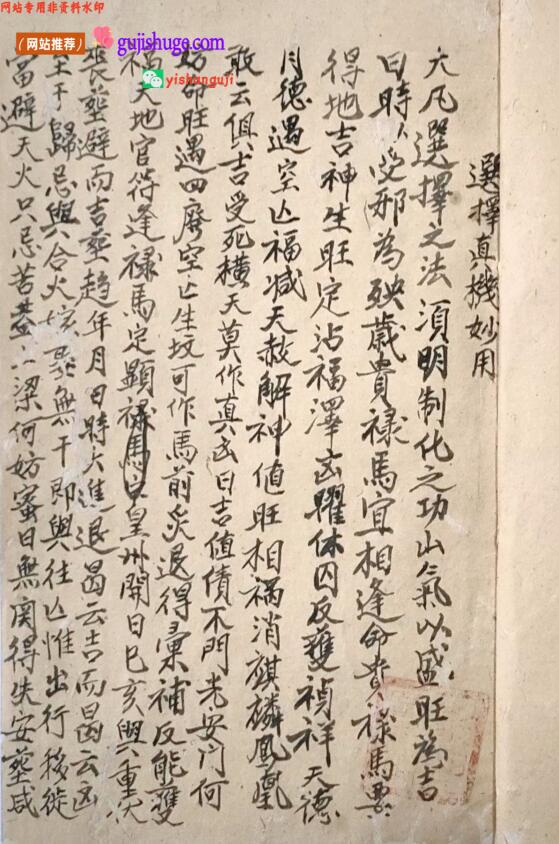 网站专用非资料水印
(网站推荐)
gujishuge.com
yishanguji
選擇真機妙用
大凡選擇之法須明制化之功山氣以盛旺為吉
日時以受邪為殃歲貴祿馬宜相逢命貴祿馬要
得地吉神生旺定沾福澤凶曜休囚反獲禎祥天德
月德遇空亡福减天赦解神值旺相禍消麒麟鳳凰
敢云俱吉受死橫天莫作真凶日吉值債不門光安门何
妨命旺遇四廢空亡生坟可作馬前炎退得彙補反能獲
福天地官符逢祿馬定顯祿皇州開日巳亥與重伏
喪塟避而吉塟趋年月日時大進退曷云吉而曷云凶
至于歸忌與六合火無干即與往亡惟出行移徙
當避天火只忌苫蓋上梁何妨蜜日無関得失安塟咸